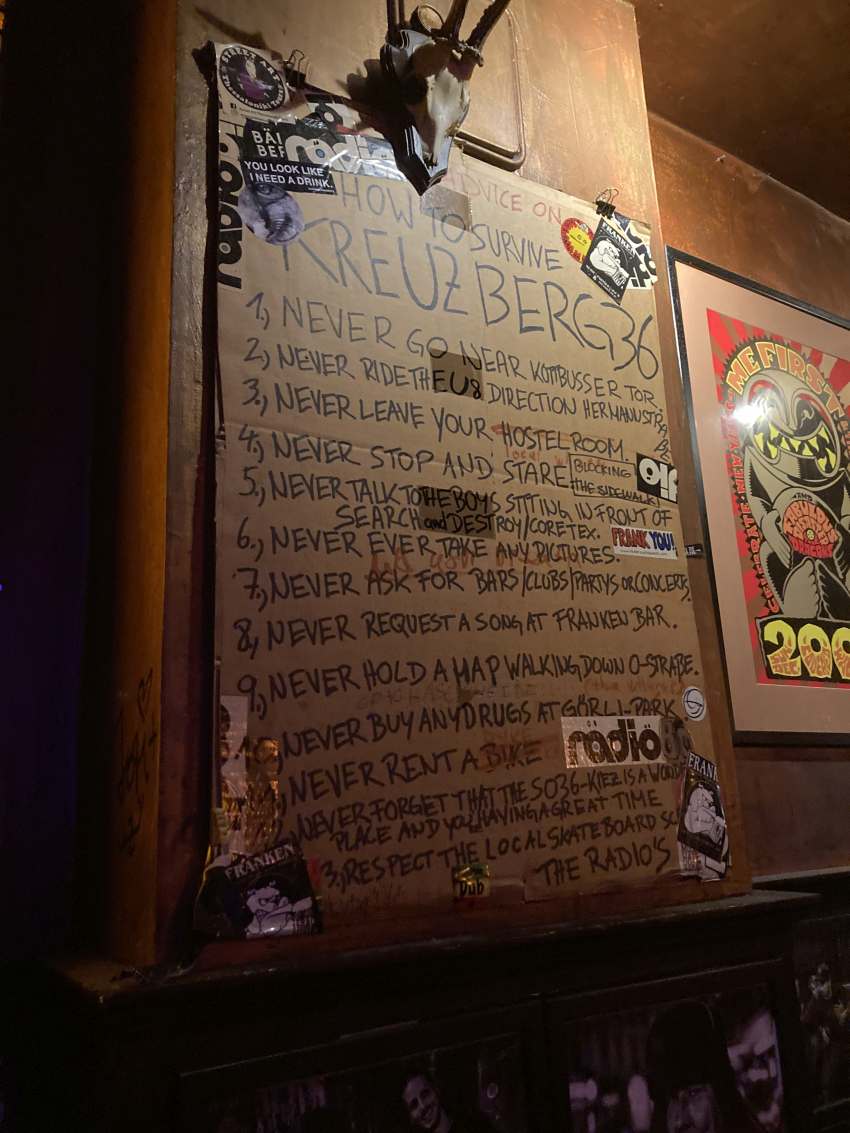 STREET ART
Thessaloniki
YOU LOOK LIKE
I NEED A DRINK.
rädiö
ADVICE ON
HOW TO SURVIVE
KREUZBERG 36
FRANKEN
1., NEVER GO NEAR KOTTBUSSER TOR
2., NEVER RIDE THE U8 DIRECTION HERMANNSTR.
3., NEVER LEAVE YOUR HOSTEL ROOM.
4., NEVER STOP AND STARE BLOCKING
THE SIDEWALK
5., NEVER TALK TO THE BOYS SITTING IN FRONT OF
SEARCH and DESTROY/CORETEX.
FRANK YOU!
6., NEVER EVER TAKE ANY PICTURES.
7., NEVER ASK FOR BARS/CLUBS/PARTYS OR CONCERTS.
8., NEVER REQUEST A SONG AT FRANKEN BAR.
9., NEVER HOLD A MAP WALKING DOWN O-STRAßE.
NEVER BUY ANY DRUGS AT GÖRLI-PARK
NEVER RENT A BIKE
rädiö
NEVER FORGET THAT THE SO36-KIEZ IS A
PLACE AND YOU HAVING A GREAT TIME
3., RESPECT THE LOCAL SKATEBOARD
THE RADIO'S
FRANK
FRANKEN
Pub
ME FIRST
AND
CELEBRATE NEW
200